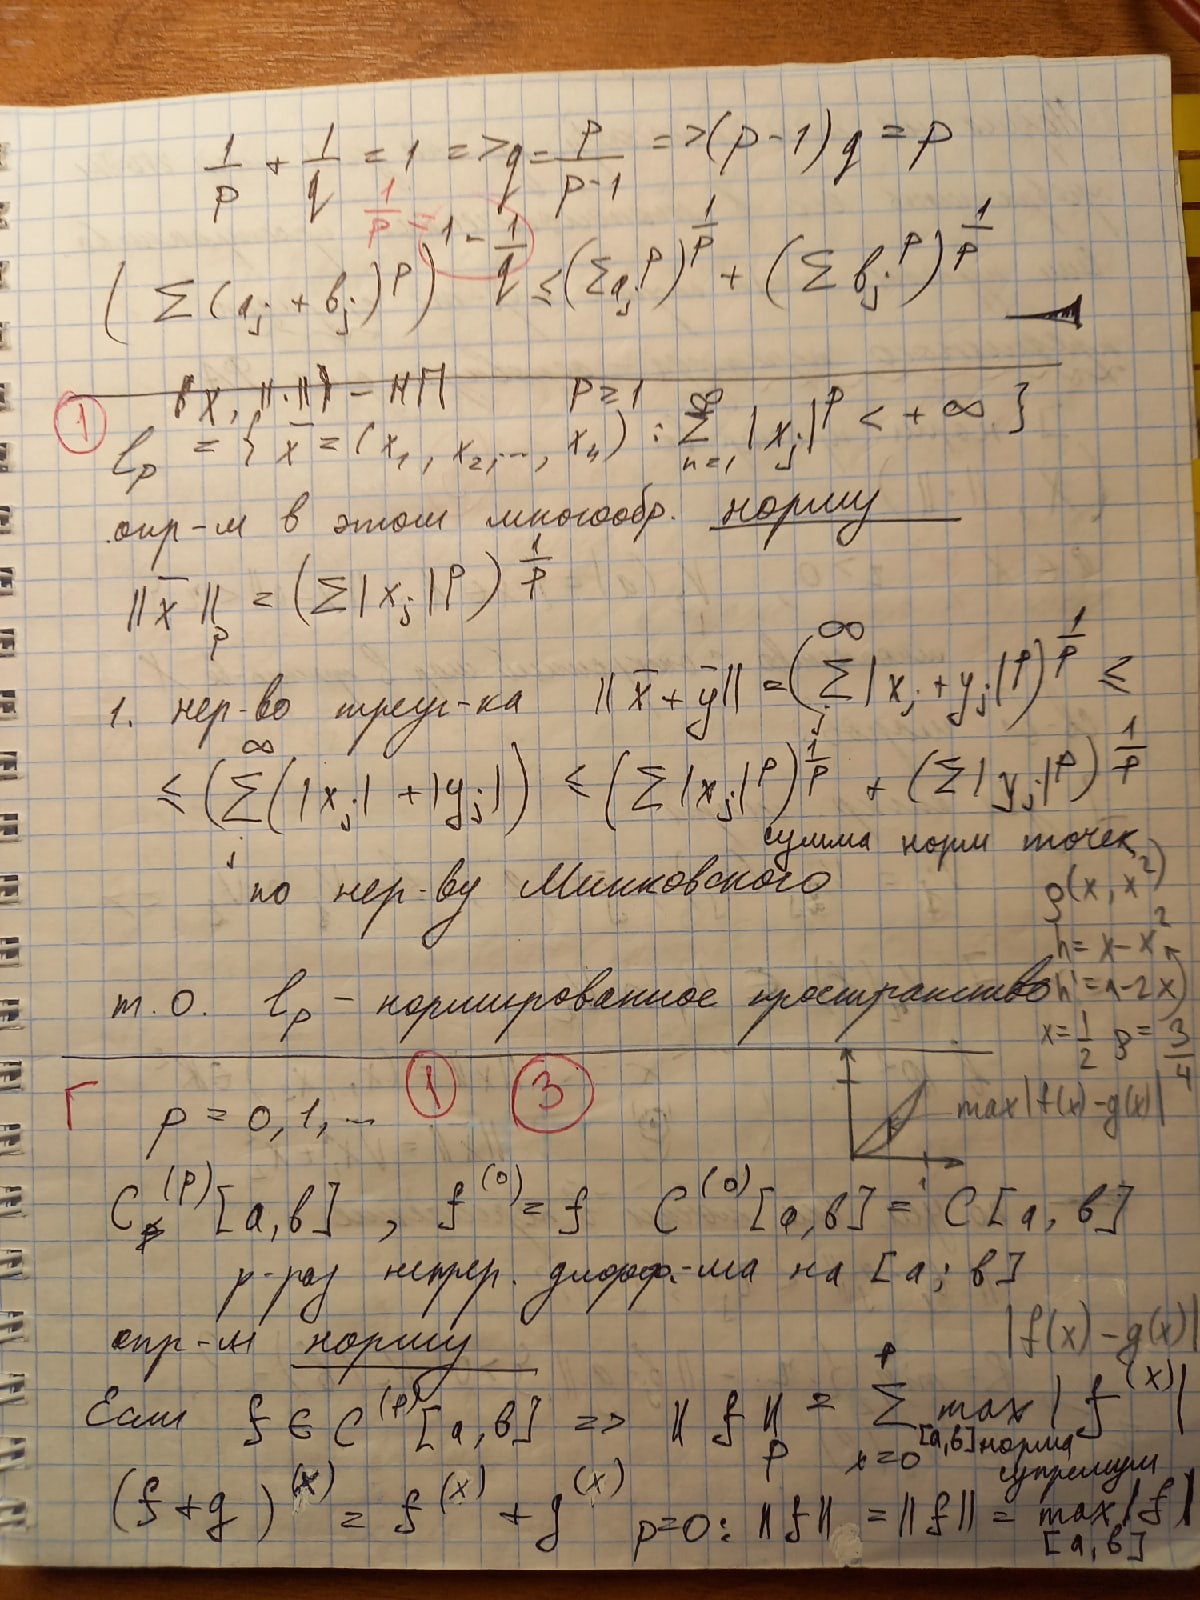 1/p + 1/q = 1 => q = p/(p-1) => (p-1)q = p
1/p =
(Σ(aj + bj)^p)^(1 - 1/q) ≤ (Σaj^p)^(1/p) + (Σbj^p)^(1/p)
① X, ||·|| - НП p ≥ 1
lp = { x̄ = (x1, x2, ..., xn) : Σ_{n=1}^∞ |xj|^p < +∞ }
опр-м в этом многообр. норму
||x̄||p = (Σ|xj|^p)^(1/p)
1. нер-во треуг-ка ||x̄ + ȳ|| = (Σ_j^∞ |xj + yj|^p)^(1/p) ≤
≤ (Σ_j^∞ (|xj| + |yj|) ≤ (Σ|xj|^p)^(1/p) + (Σ|yj|^p)^(1/p)
сумма норм точек
по нер-ву Минковского
ρ(x, x^2)
h = x - x^2
т.о. lp - нормированное пространство
h' = 1 - 2x
x = 1/2 ρ = 3/4
p = 0, 1, ... ① ③
max|f(x) - g(x)|
C^(p)[a, b], f^(0) = f C^(0)[a, b] = C[a, b]
p-раз непрер. дифф.-ма на [a; b]
опр-м норму
|f(x) - g(x)|
Если f ∈ C^(p)[a, b] => ||f||p = Σ_{x=0}^p max_[a,b] |f^(x)|
норма супремум
(f + g)^(x) = f^(x) + g^(x) p=0: ||f|| = ||f|| = max_[a,b] |f|